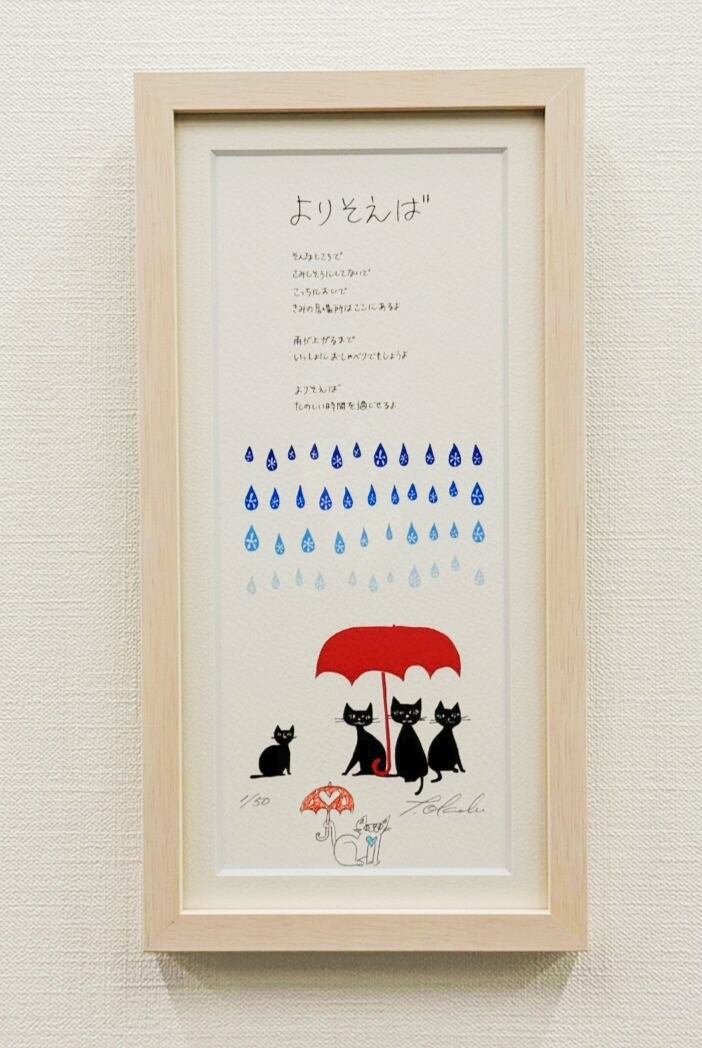 よりそえば
そんなところで
さみしそうにしてないで
こっちにおいで
きみの居場所はここにあるよ
雨が上がるまで
いっしょにおしゃべりでもしようよ
よりそえば
たのしい時間を過ごせるよ
1/50